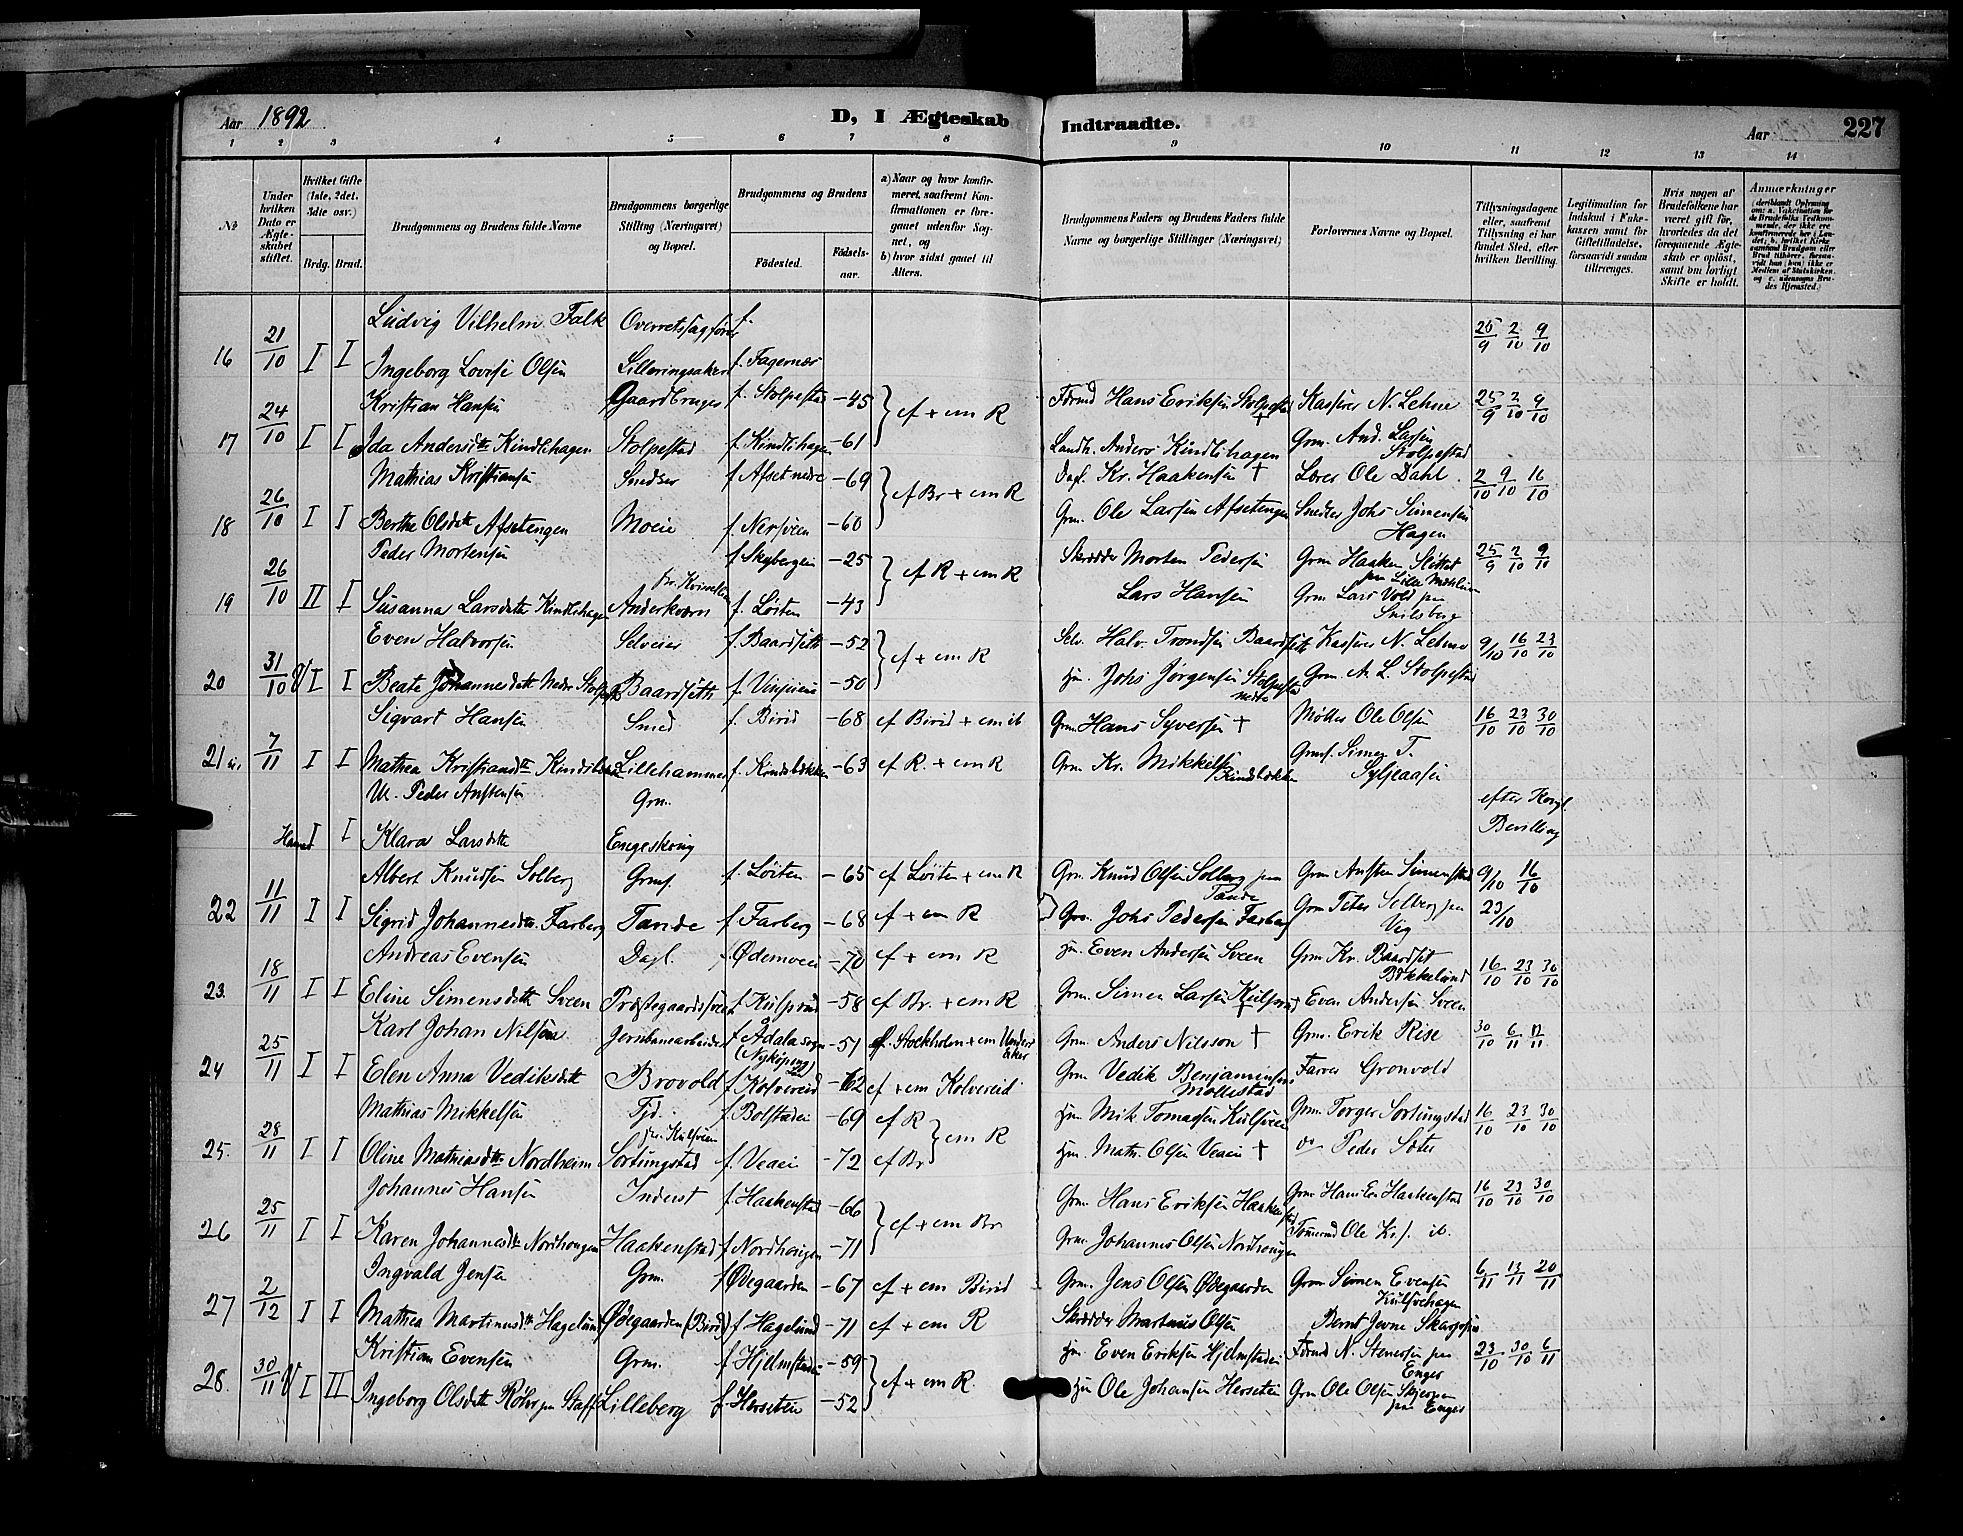 Aar 1892 D, I Ægteskab Indtraadte. Aar 227
1 2 3 4 5 6 7 8 9 10 11 12 13 14
№
Under hvilken Dato er Ægteskabet stiftet.
Hvilket Gifte (1ste, 2det, 3die osv.)
Brdg. Brud.
Brudgommens og Brudens fulde Navne
Brudgommens borgerlige Stilling (Næringsvei) og Bopæl.
Brudgommens og Brudens
Födested. Födselsaar.
a) Naar og hvor konfirmeret, saafremt Konfirmationen er foregaaet udenfor Sognet, og
b) hvor sidst gaaet til Alters.
Brudgommens Faders og Brudens Faders fulde Navne og borgerlige Stillinger (Næringsvei)
Forlovernes Navne og Bopæl.
Tillysningsdagene eller, saafremt Tillysning ei har fundet Sted, efter hvilken Bevilling.
Legitimation for Indskud i Enkekassen samt for Giftetilladelse, forsaavidt saadan tiltrænges.
Hvis nogen af Brudefolkene har været gift för, hvorledes da det foregaaende Ægteskab er oplöst, samt om lovligt Skifte er holdt.
Anmærkninger
Ludvig Vilhelm Falk Overretssagförer f. 25/9 2/10 9/10
16 21/10 I I Ingeborg Lovise Olsen Lilleringsaker f. Fagernæs
Kristian Hansen Gaardbruger f. Stolpestad -45 cf + cm R Form. Hans Eriksen Stolpestad + Kasserer N. Lehne 25/9 2/10 9/10
17 24/10 I I Ida Andersdtr Kindlihagen Stolpestad f. Kindlihagen -61 Landh. Anders Kindlihagen Grm. And. Larsen Stolpestad
Mathias Kristiansen Snedker f. Afset nedre -69 cf Br + cm R Dagl. Kr. Haakensen + Lærer Ole Dahl 2/10 9/10 16/10
18 26/10 I I Berthe Olsdtr Afsetengen Moeie f. Nersveen -60 Grm. Ole Larsen Afsetengen Snedker Johs Simensen Hagen
Peder Mortensen f. Skybergeie -25 cf R + cm R Skrædder Morten Pedersen Grm Haaken 25/9 2/10 9/10
19 26/10 II I Susanna Larsdtr Kindlihagen Anderkværn f. Löiten -43 Lars Hansen Grm Lars Vold paa
Even Halvorsen Selveier f. Baardseth -52 cf + cm R Selv. Halv. Trondsen Baardseth Kasserer N. Lehne 9/10 16/10 23/10
20 31/10 I I Beate Johannesdtr Nedre Stolpestad Baardseth f. Vinjueie -50 Hm. Johs Jörgensen Stolpestad nedre Grm. A. L. Stolpestad
Sigvart Hansen Smed f. Birid -68 cf Birid + cm ib Grm. Hans Syversen + Möller Ole Olsen 16/10 23/10 30/10
21 7/11 I I Mathea Kristiansdtr Lillehammer f. Kindlibækken -63 cf R. + cm R Grm. Kr. Mikkelsen Kindlibækken Grmf. Simen T. Syljeaasen
U. Peder Anstensen Grm. efter Kongl.
Hamar I I Klara Larsdtr Engeskoug Bevilling
Albert Knudsen Solberg Grmf. f. Löiten -65 cf Löiten + cm R Grm. Knud Olsen Solberg paa Tande Grm Ansten Simenstad 9/10 16/10
22 11/11 I I Sigrid Johannesdtr. Farberg Tande f. Farberg -68 cf + cm R Grm. Johs Pedersen Farberg Grm Peter Solberg paa Vig 23/10
Andreas Evensen Dagl. f. Ødemoen -70 cf + cm R Hm. Even Andersen Sveen Grm Kr. Baardset Bækkelund 16/10 23/10 30/10
23. 18/11 I I Eline Simensdtr Sveen Præstegaardssveen f. Kulsrud -58 cf Br. + cm R Grm. Simen Larsen Kulsrud + Even Andersen Sveen
Karl Johan Nilsen Jernbanearbeider f. Ådala sogn (Nyköping) -51 cf. Stockholm + cm Grm. Anders Nilsson + Grm. Erik Rise 30/10 6/11 13/11
24 25/11 I I Elen Anna Vediksdtr Brovold f. Kolvereid -62 cf + cm Kolvereid Grm. Vedik Benjaminsen Mollestad Farver Grönvold
Mathias Mikkelsen Tjd. f. Bolstadeie -69 cf R cm R Hm. Mik. Tomassen Kulsveen Grm. Torger Sortungstad 16/10 23/10 30/10
25. 28/11 I I Oline Mathiasdtr Nordheim Sortungstad f. Veaeie -72 cf Br Hm. Math. Olsen Veaeie + Peder Sæter
Johannes Hansen Inderst f. Haakenstad -66 cf + cm Br Grm. Hans Eriksen Haakenstad Grm. Hans En Haakenstad 16/10 23/10 30/10
26 25/11 I I Karen Johannesdtr Nordhougen Haakenstad f. Nordhougen -71 Grm. Johannes Olsen Nordhougen Tömmermd Ole Kr.s. ib.
Ingvald Jensen Grm. f. Ødegaarden -67 cf + cm Birid Grm. Jens Olsen Ødegaarden Grm Simen Evensen Kulsvehagen 6/11 13/11 20/11
27 2/12 I I Mathea Martinusdtr Hagelund Ødegaarden (Birid) f. Hagelund -71 cf + cm R Skrædder Martinus Olsen Bernt Jevne
Kristian Evensen Grm. f. Hjelmstadeie -59 cf + cm R. Hm. Even Eriksen Hjelmstadeie Formd N. Stenersen paa Enger 23/10 30/10 6/11
28. 30/11 I II Ingeborg Olsdtr Röhr paa Staff Lilleberg f. Herseteie -52 Hm Ole Johansen Herseteie Grm Ole Olsen Skjerpen paa Enger